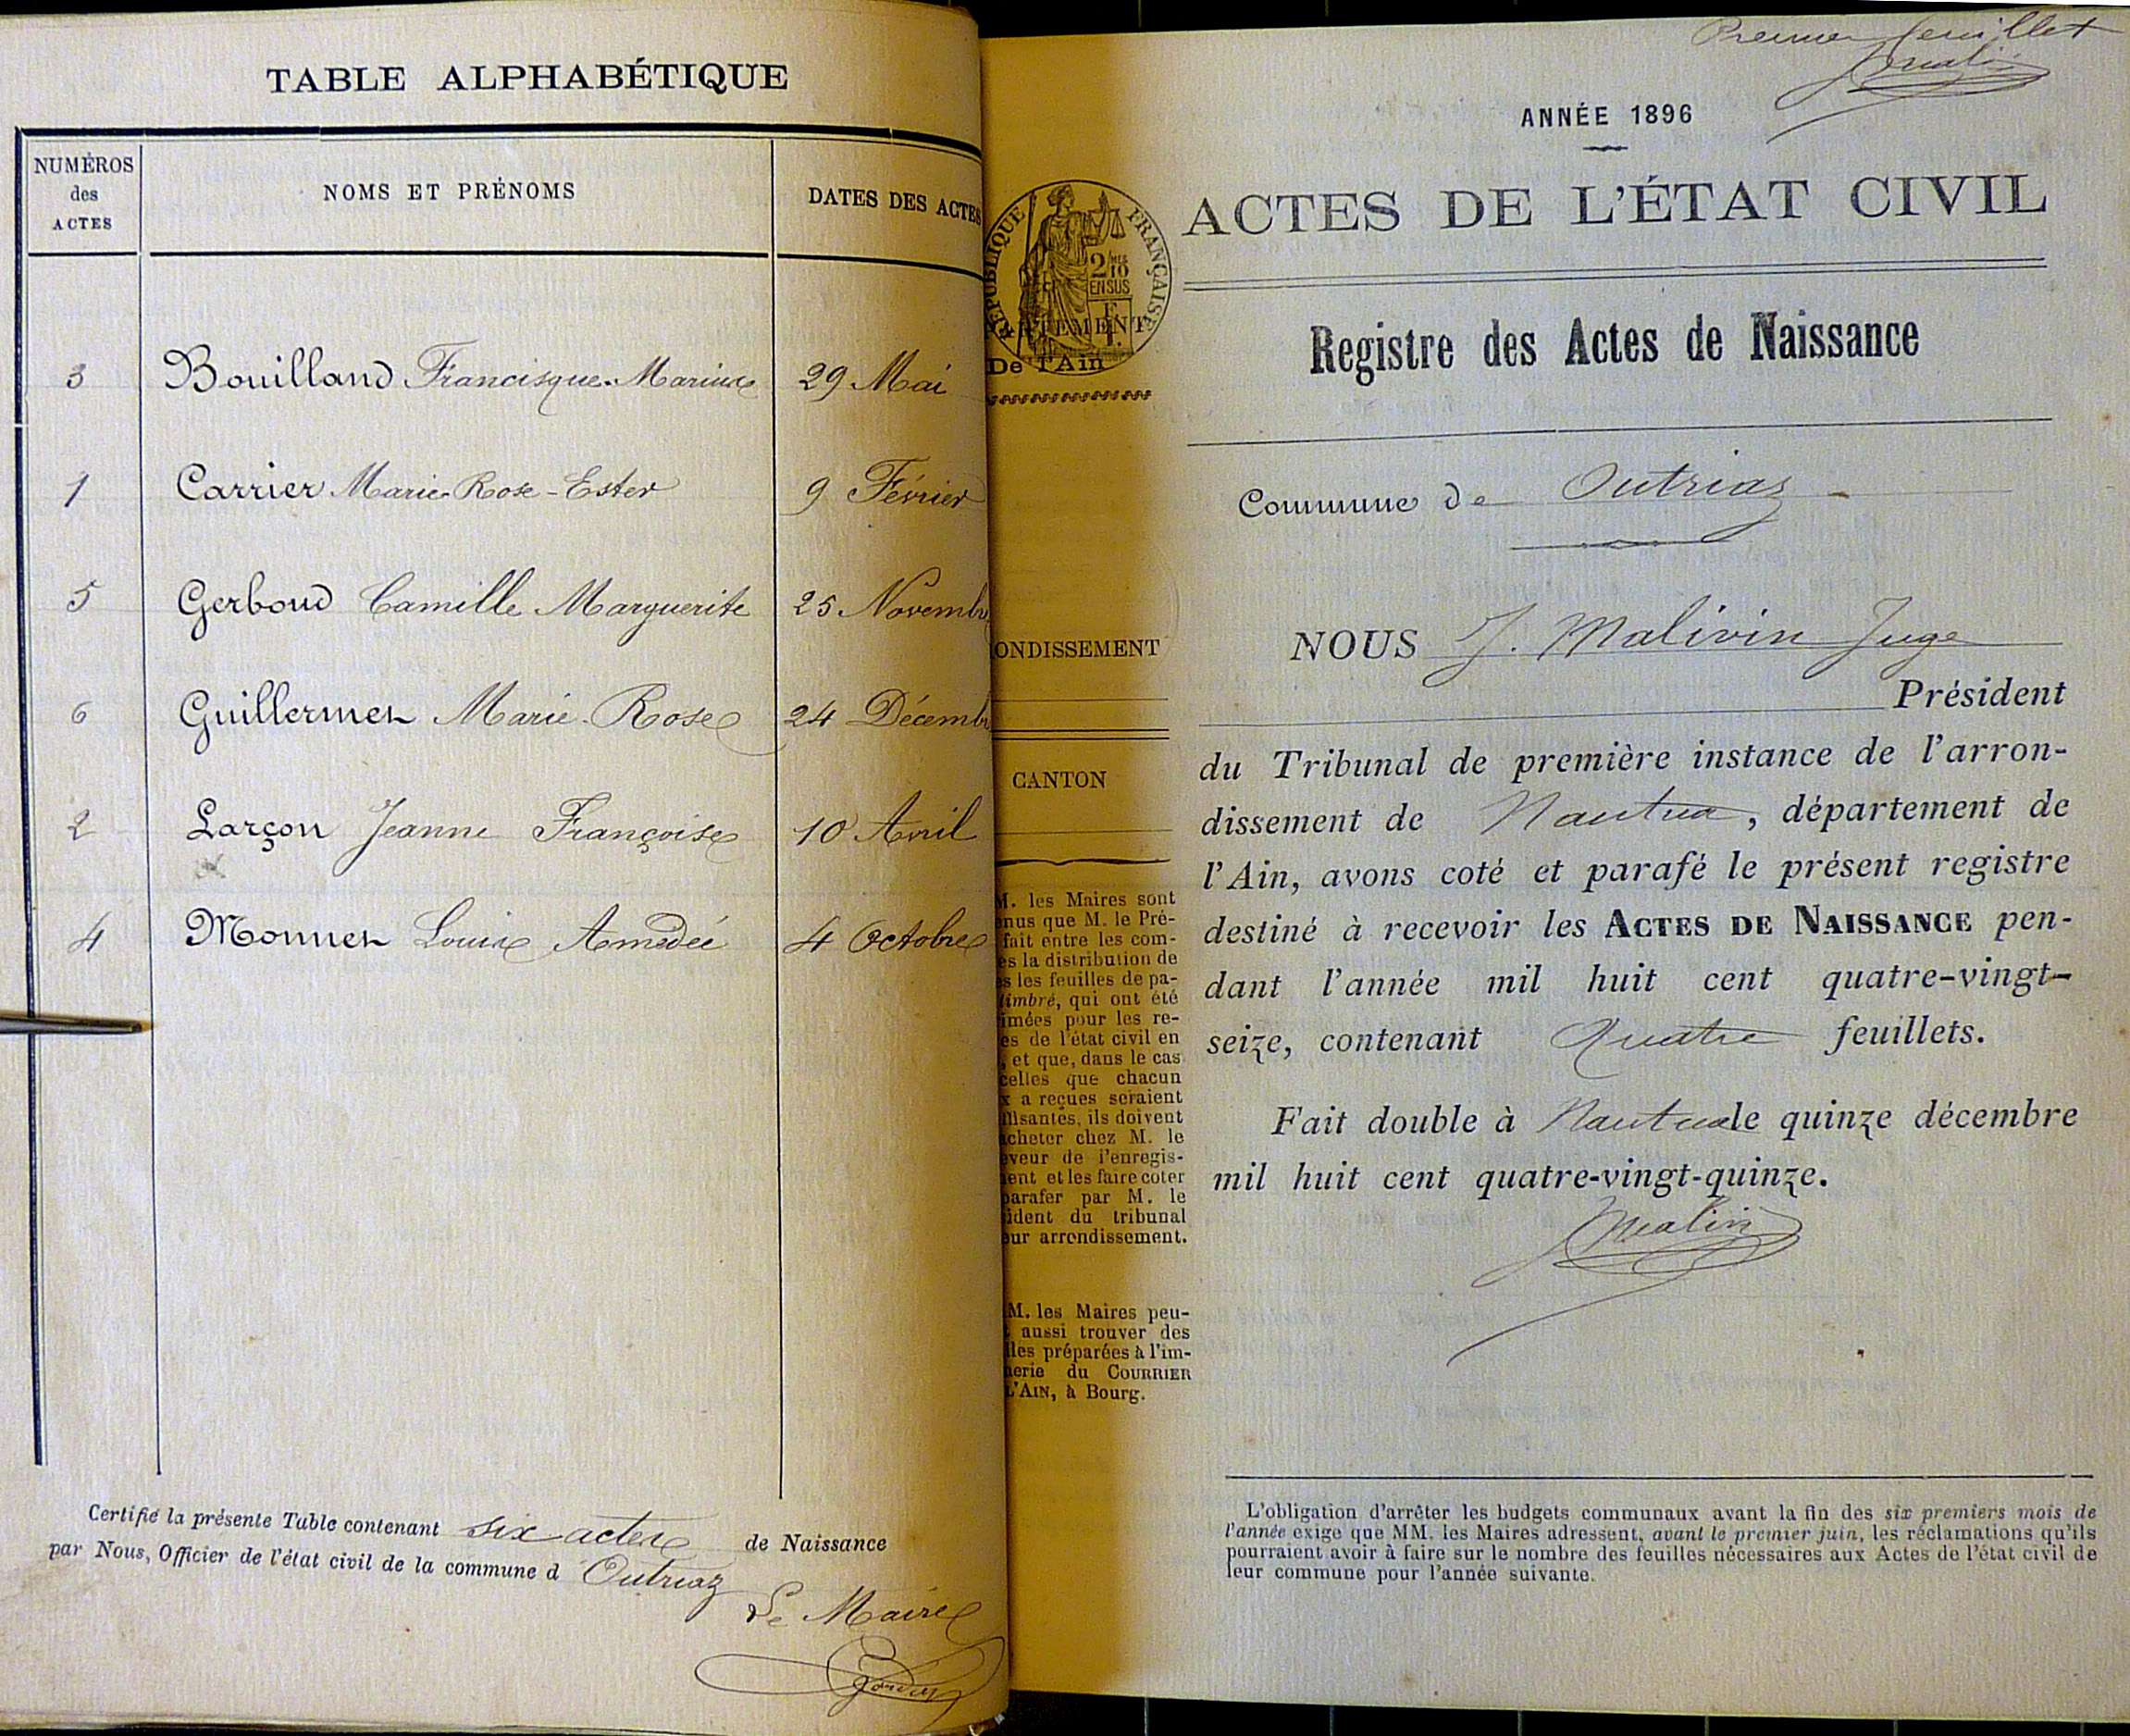 TABLE ALPHABÉTIQUE
NUMÉROS
des
ACTES
NOMS ET PRÉNOMS
DATES DES ACTES
3 Bouilland Francisque-Marius 29 Mai
1 Carrier Marie-Rose-Ester 9 Février
5 Gerboud Camille Marguerite 25 Novembre
6 Guillermet Marie-Rose 24 Décemb
2 Larçon Jeanne Françoise 10 Avril
4 Monnet Louis Amedée 4 Octobre
Certifié la présente Table contenant six actes de Naissance
par Nous, Officier de l'état civil de la commune d Outriaz
Le Maire
RÉPUBLIQUE FRANÇAISE
2/10
EN SUS
De l'Ain
ONDISSEMENT
CANTON
M. les Maires sont
nus que M. le Pré-
fait entre les com-
es la distribution de
s les feuilles de pa-
timbré, qui ont été
imées pour les re-
es de l'état civil en
, et que, dans le cas
celles que chacun
x a reçues seraient
ffisantes, ils doivent
cheter chez M. le
eveur de l'enregis-
ent et les faire coter
parafer par M. le
ident du tribunal
eur arrondissement.
M. les Maires peu-
t aussi trouver des
lles préparées à l'im-
erie du COURRIER
L'AIN, à Bourg.
Premier feuillet
ANNÉE 1896
ACTES DE L'ÉTAT CIVIL
Registre des Actes de Naissance
Commune de Outriaz
NOUS J. Malivin Juge
Président
du Tribunal de première instance de l'arron-
dissement de Nantua, département de
l'Ain, avons coté et parafé le présent registre
destiné à recevoir les ACTES DE NAISSANCE pen-
dant l'année mil huit cent quatre-vingt-
seize, contenant Quatre feuillets.
Fait double à Nantua le quinze décembre
mil huit cent quatre-vingt-quinze.
L'obligation d'arrêter les budgets communaux avant la fin des six premiers mois de
l'année exige que MM. les Maires adressent, avant le premier juin, les réclamations qu'ils
pourraient avoir à faire sur le nombre des feuilles nécessaires aux Actes de l'état civil de
leur commune pour l'année suivante.